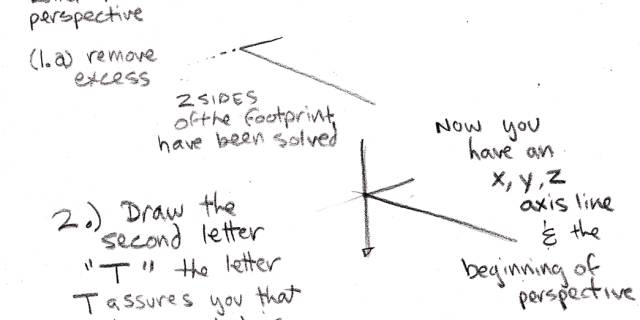 perspective
(1.a) remove
excess
2 SIDES
of the footprint,
have been solved
Now you
have an
x, y, z
axis line
& the
beginning of
perspective
2.) Draw the
second letter
"T" the letter
T assures you that